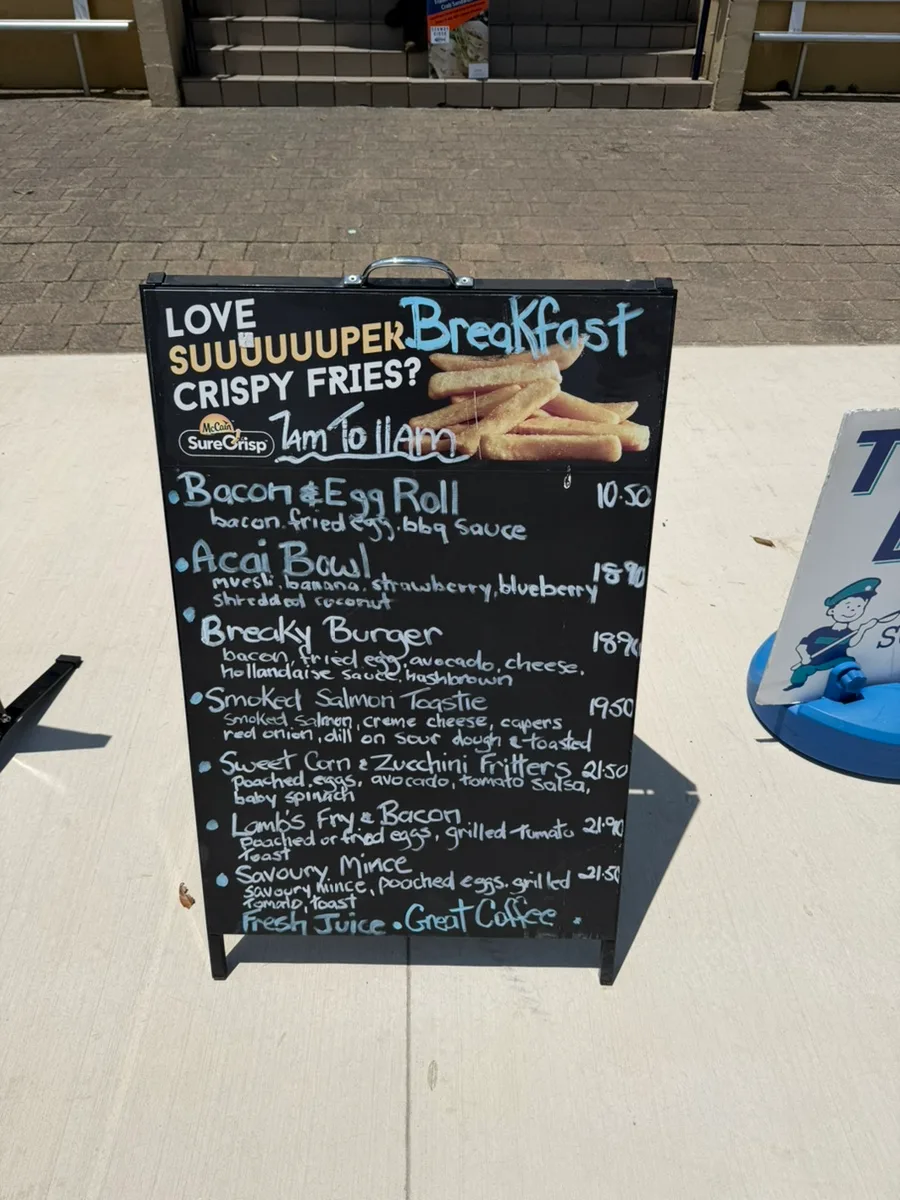 LOVE
SUUUUUUPER
CRISPY FRIES?
Breakfast
McCain
SureCrisp
7am To 11am
• Bacon & Egg Roll 10.50
bacon, fried egg, bbq sauce
• Acai Bowl 18.90
muesli, banana, strawberry, blueberry
shredded coconut
• Breaky Burger 18.90
bacon, fried egg, avocado, cheese,
hollandaise sauce, hashbrown
• Smoked Salmon Toastie 19.50
smoked salmon, creme cheese, capers
red onion, dill on sour dough & toasted
• Sweet Corn & Zucchini Fritters 21.50
poached eggs, avocado, tomato salsa,
baby spinach
• Lamb's Fry & Bacon 21.90
poached or fried eggs, grilled tomato
toast
• Savoury Mince 21.50
savoury mince, poached eggs, grilled
tomato, toast
Fresh Juice • Great Coffee •